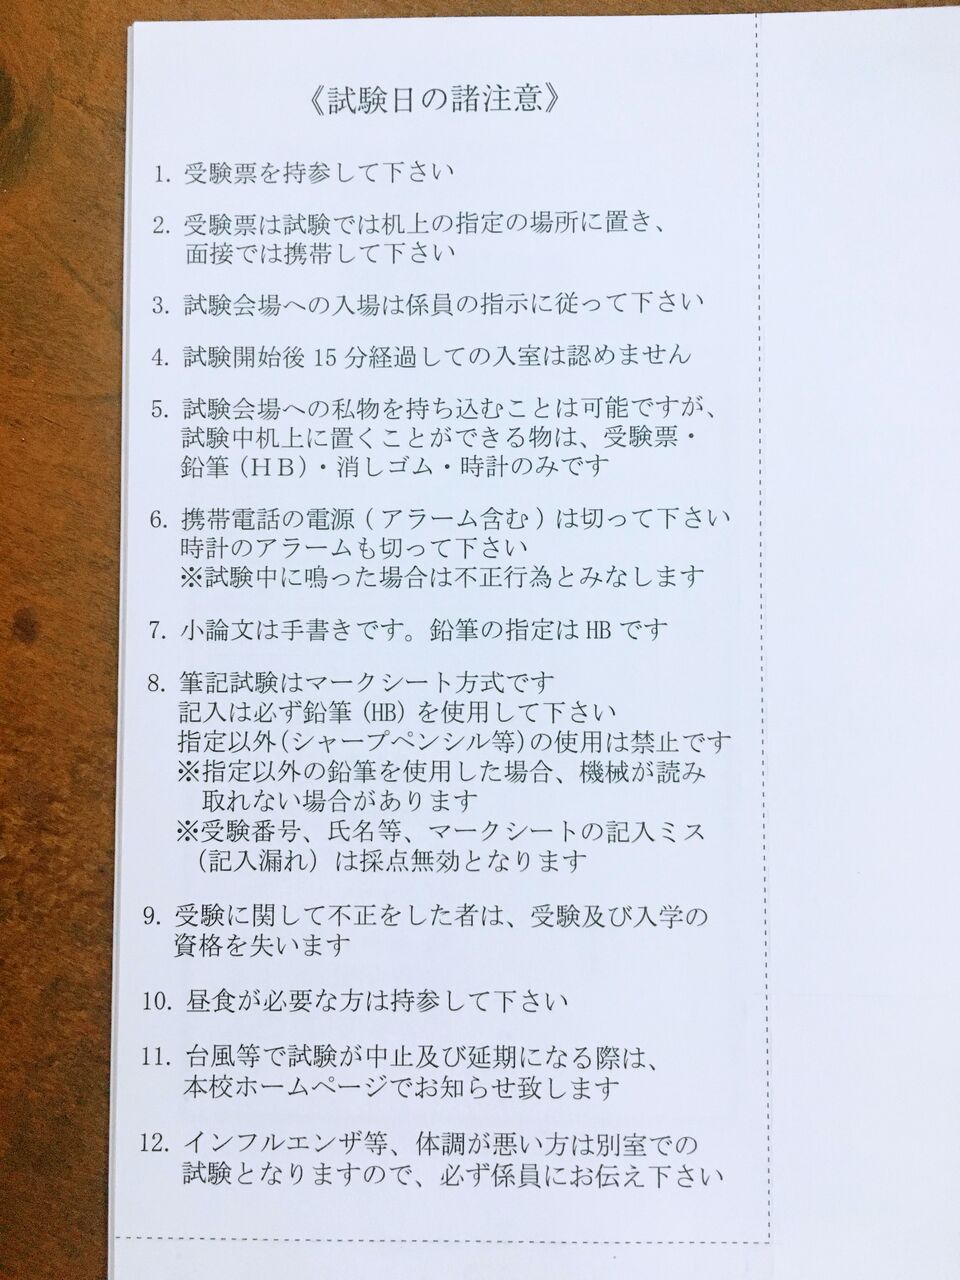 《試験日の諸注意》
1. 受験票を持参して下さい
2. 受験票は試験では机上の指定の場所に置き、
面接では携帯して下さい
3. 試験会場への入場は係員の指示に従って下さい
4. 試験開始後 15 分経過しての入室は認めません
5. 試験会場への私物を持ち込むことは可能ですが、
試験中机上に置くことができる物は、受験票・
鉛筆(ＨＢ)・消しゴム・時計のみです
6. 携帯電話の電源(アラーム含む)は切って下さい
時計のアラームも切って下さい
※試験中に鳴った場合は不正行為とみなします
7. 小論文は手書きです。鉛筆の指定は HB です
8. 筆記試験はマークシート方式です
記入は必ず鉛筆(HB)を使用して下さい
指定以外(シャープペンシル等)の使用は禁止です
※指定以外の鉛筆を使用した場合、機械が読み
取れない場合があります
※受験番号、氏名等、マークシートの記入ミス
(記入漏れ)は採点無効となります
9. 受験に関して不正をした者は、受験及び入学の
資格を失います
10. 昼食が必要な方は持参して下さい
11. 台風等で試験が中止及び延期になる際は、
本校ホームページでお知らせ致します
12. インフルエンザ等、体調が悪い方は別室での
試験となりますので、必ず係員にお伝え下さい